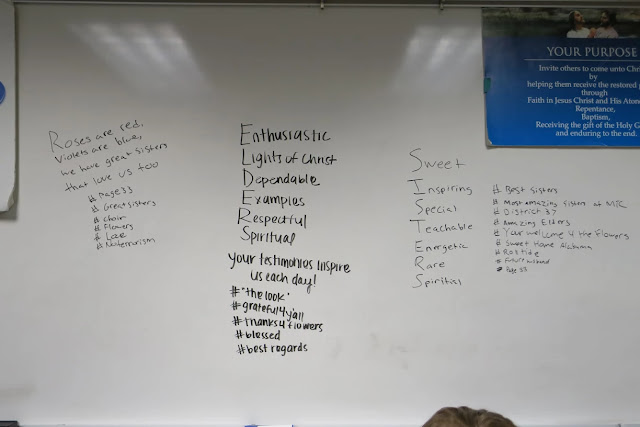 Roses are red,
Violets are blue,
we have great sisters
that love us too
# Page 33
# Great sisters
# Choir
# Flowers
# Love
Enthusiastic
Lights of Christ
Dependable
Examples
Respectful
Spiritual
your testimonies inspire
us each day!
# "the look"
# grateful4y'all
# thanks4flowers
# blessed
# best regards
Sweet
Inspiring
Special
Teachable
Energetic
Rare
Spiritial
# Best sisters
# Most amazing sisters at MTC
# District 37
# Amazing Elders
# Your welcome 4 the flowers
# Sweet Home Alabama
# Roltide
# Page 33
YOUR PURPOSE
Invite others to come unto Chri
by
helping them receive the restored
through
Faith in Jesus Christ and His Atone
Repentance,
Baptism,
Receiving the gift of the Holy G
and enduring to the end.